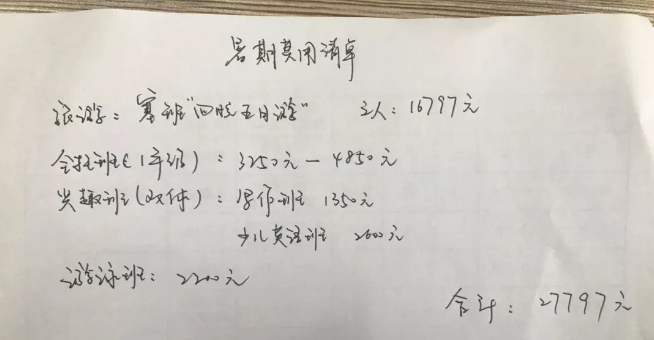 暑期费用清单
旅游：塞班"四晚五日游" 2人：16797元
全托班(1年级)：3250元—4850元
兴趣班(文体)：写作班 1350元
少儿英语班 2600元
游泳班：2200元
合计：27797元